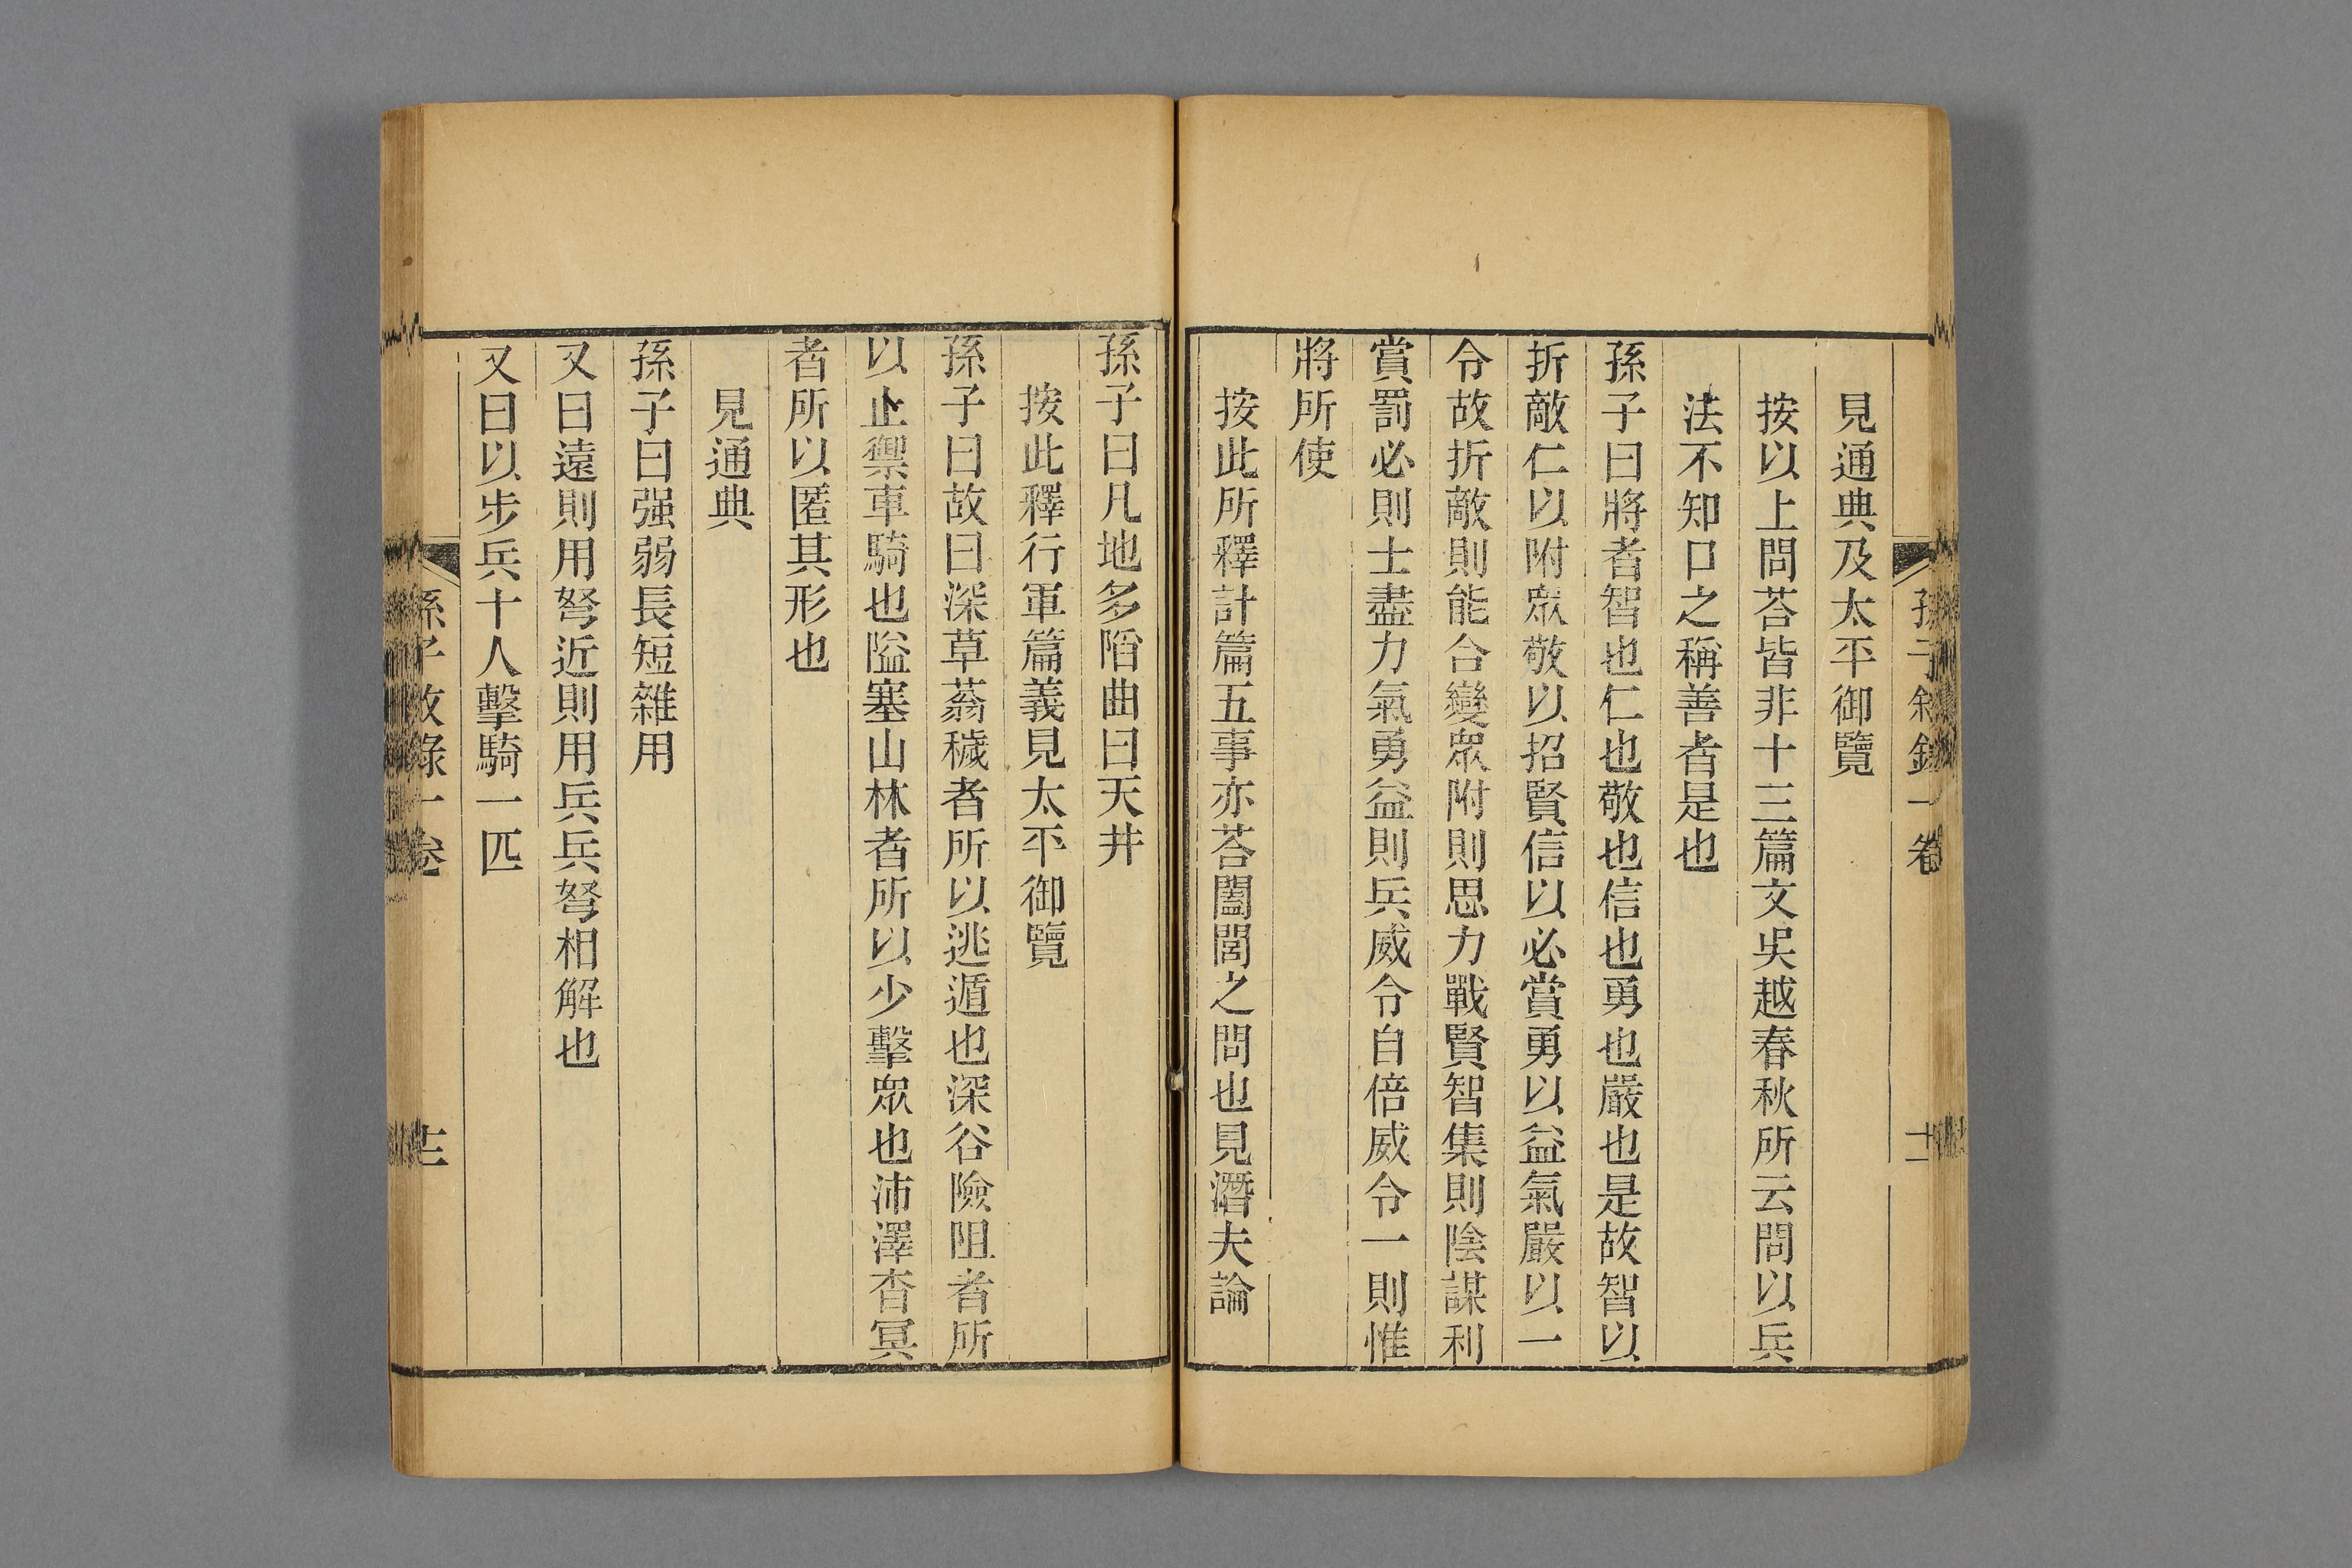 孫子敘錄一卷
十一
見通典及太平御覽
按以上問荅皆非十三篇文吳越春秋所云問以兵
法不知口之稱善者是也
孫子曰將者智也仁也敬也信也勇也嚴也是故智以
折敵仁以附眾敬以招賢信以必賞勇以益氣嚴以一
令故折敵則能合變眾附則思力戰賢智集則陰謀利
賞罰必則士盡力氣勇益則兵威令自倍威令一則惟
將所使
按此所釋計篇五事亦荅闔閭之問也見潛夫論
孫子曰凡地多陷曲曰天井
按此釋行軍篇義見太平御覽
孫子曰故曰深草蓊穢者所以逃遁也深谷險阻者所
以止禦車騎也隘塞山林者所以少擊眾也沛澤杳冥
者所以匿其形也
見通典
孫子曰强弱長短雜用
又曰遠則用弩近則用兵兵弩相解也
又曰以步兵十人擊騎一匹
孫子敘錄一卷
十二